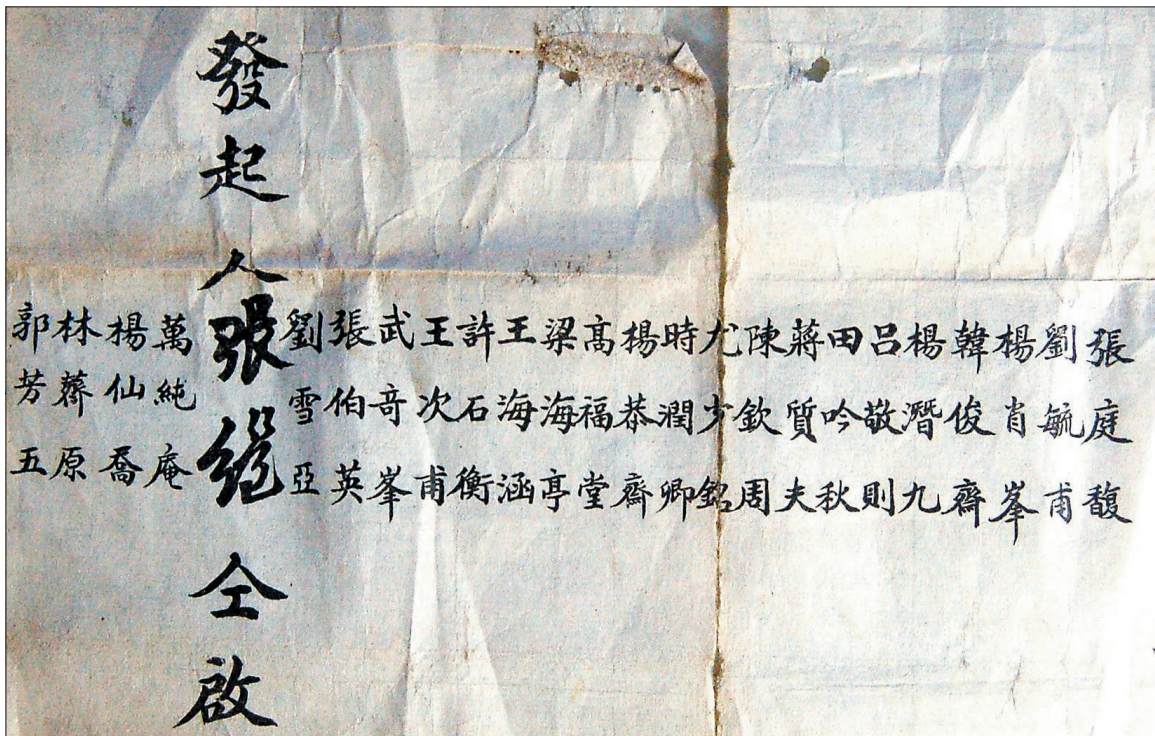 張庭馥
劉毓甫
楊肖峯
韓俊齋
楊潛九
呂敬則
田吟秋
蔣質夫
陳欽周
尤少銘
時潤卿
楊恭齋
高福堂
梁海亭
王海涵
許石衡
王次甫
武奇峯
張伯英
劉雪亞
發起人張鈁仝啟
萬純庵
楊仙喬
林薺原
郭芳五